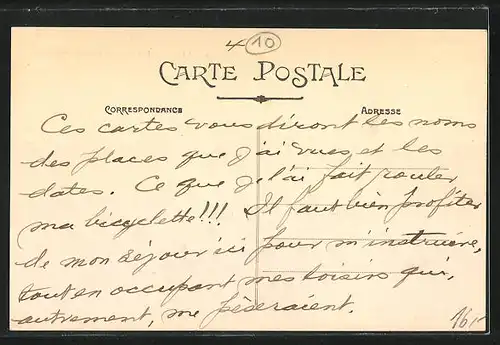 4 10
CARTE POSTALE
CORRESPONDANCE ADRESSE
Ces cartes vous diront les noms
des places que j'ai vues et les
dates. Ce que je l'ai fait rouler
ma bicyclette!!! Il faut bien profiter
de mon séjour ici pour m'instruire,
tout en occupant mes loisirs qui,
autrement, me pèseraient.